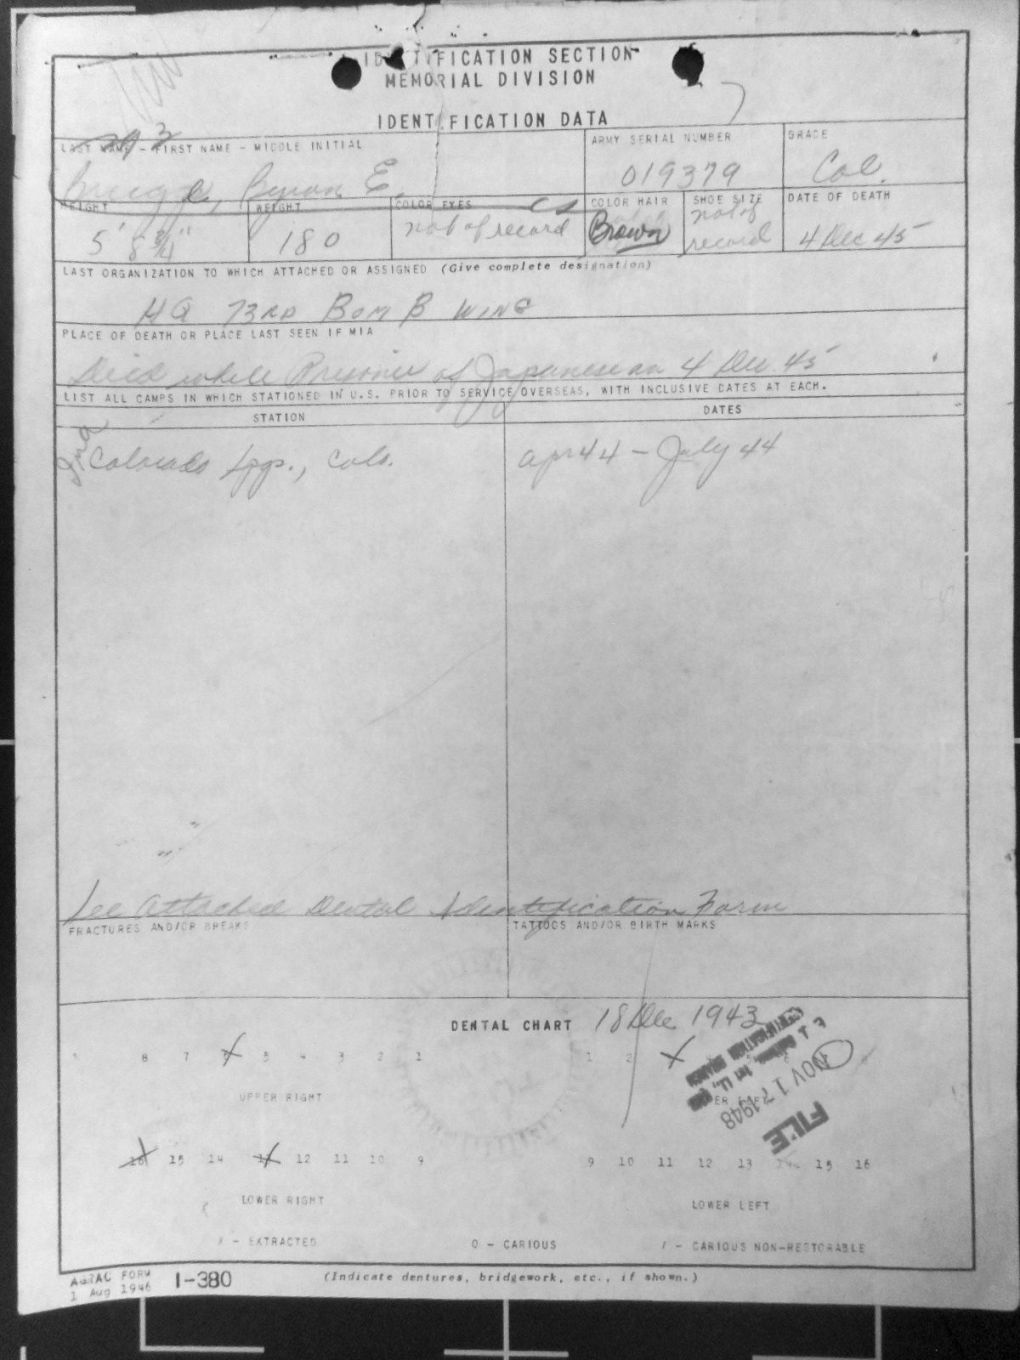 IDENTIFICATION SECTION
MEMORIAL DIVISION
IDENTIFICATION DATA
LAST NAME - FIRST NAME - MIDDLE INITIAL
ARMY SERIAL NUMBER
GRADE
Brugge, Byron E.
019379
Col.
HEIGHT
WEIGHT
COLOR EYES
COLOR HAIR
SHOE SIZE
DATE OF DEATH
5' 8 3/4"
180
not of record
Brown
not of record
4 Dec 45
LAST ORGANIZATION TO WHICH ATTACHED OR ASSIGNED (Give complete designation)
HQ 73RD BOMB WING
PLACE OF DEATH OR PLACE LAST SEEN IF MIA
Died while Prisoner of Japanese on 4 Dec 45
LIST ALL CAMPS IN WHICH STATIONED IN U.S. PRIOR TO SERVICE OVERSEAS, WITH INCLUSIVE DATES AT EACH.
STATION
DATES
Colorado Spgs., Colo.
Apr 44 - July 44
See Attached Dental Identification Form
FRACTURES AND/OR BREAKS
TATTOOS AND/OR BIRTH MARKS
DENTAL CHART 18 Dec 1943
8 7 5 4 3 2 1
1 2
UPPER RIGHT
NOV 17 1948
FILE
16 15 14 13 12 11 10 9
9 10 11 12 13 14 15 16
LOWER RIGHT
LOWER LEFT
/ - EXTRACTED
O - CARIOUS
/ - CARIOUS NON-RESTORABLE
AGRAC FORM
1 Aug 1946
1-380
(Indicate dentures, bridgework, etc., if shown.)